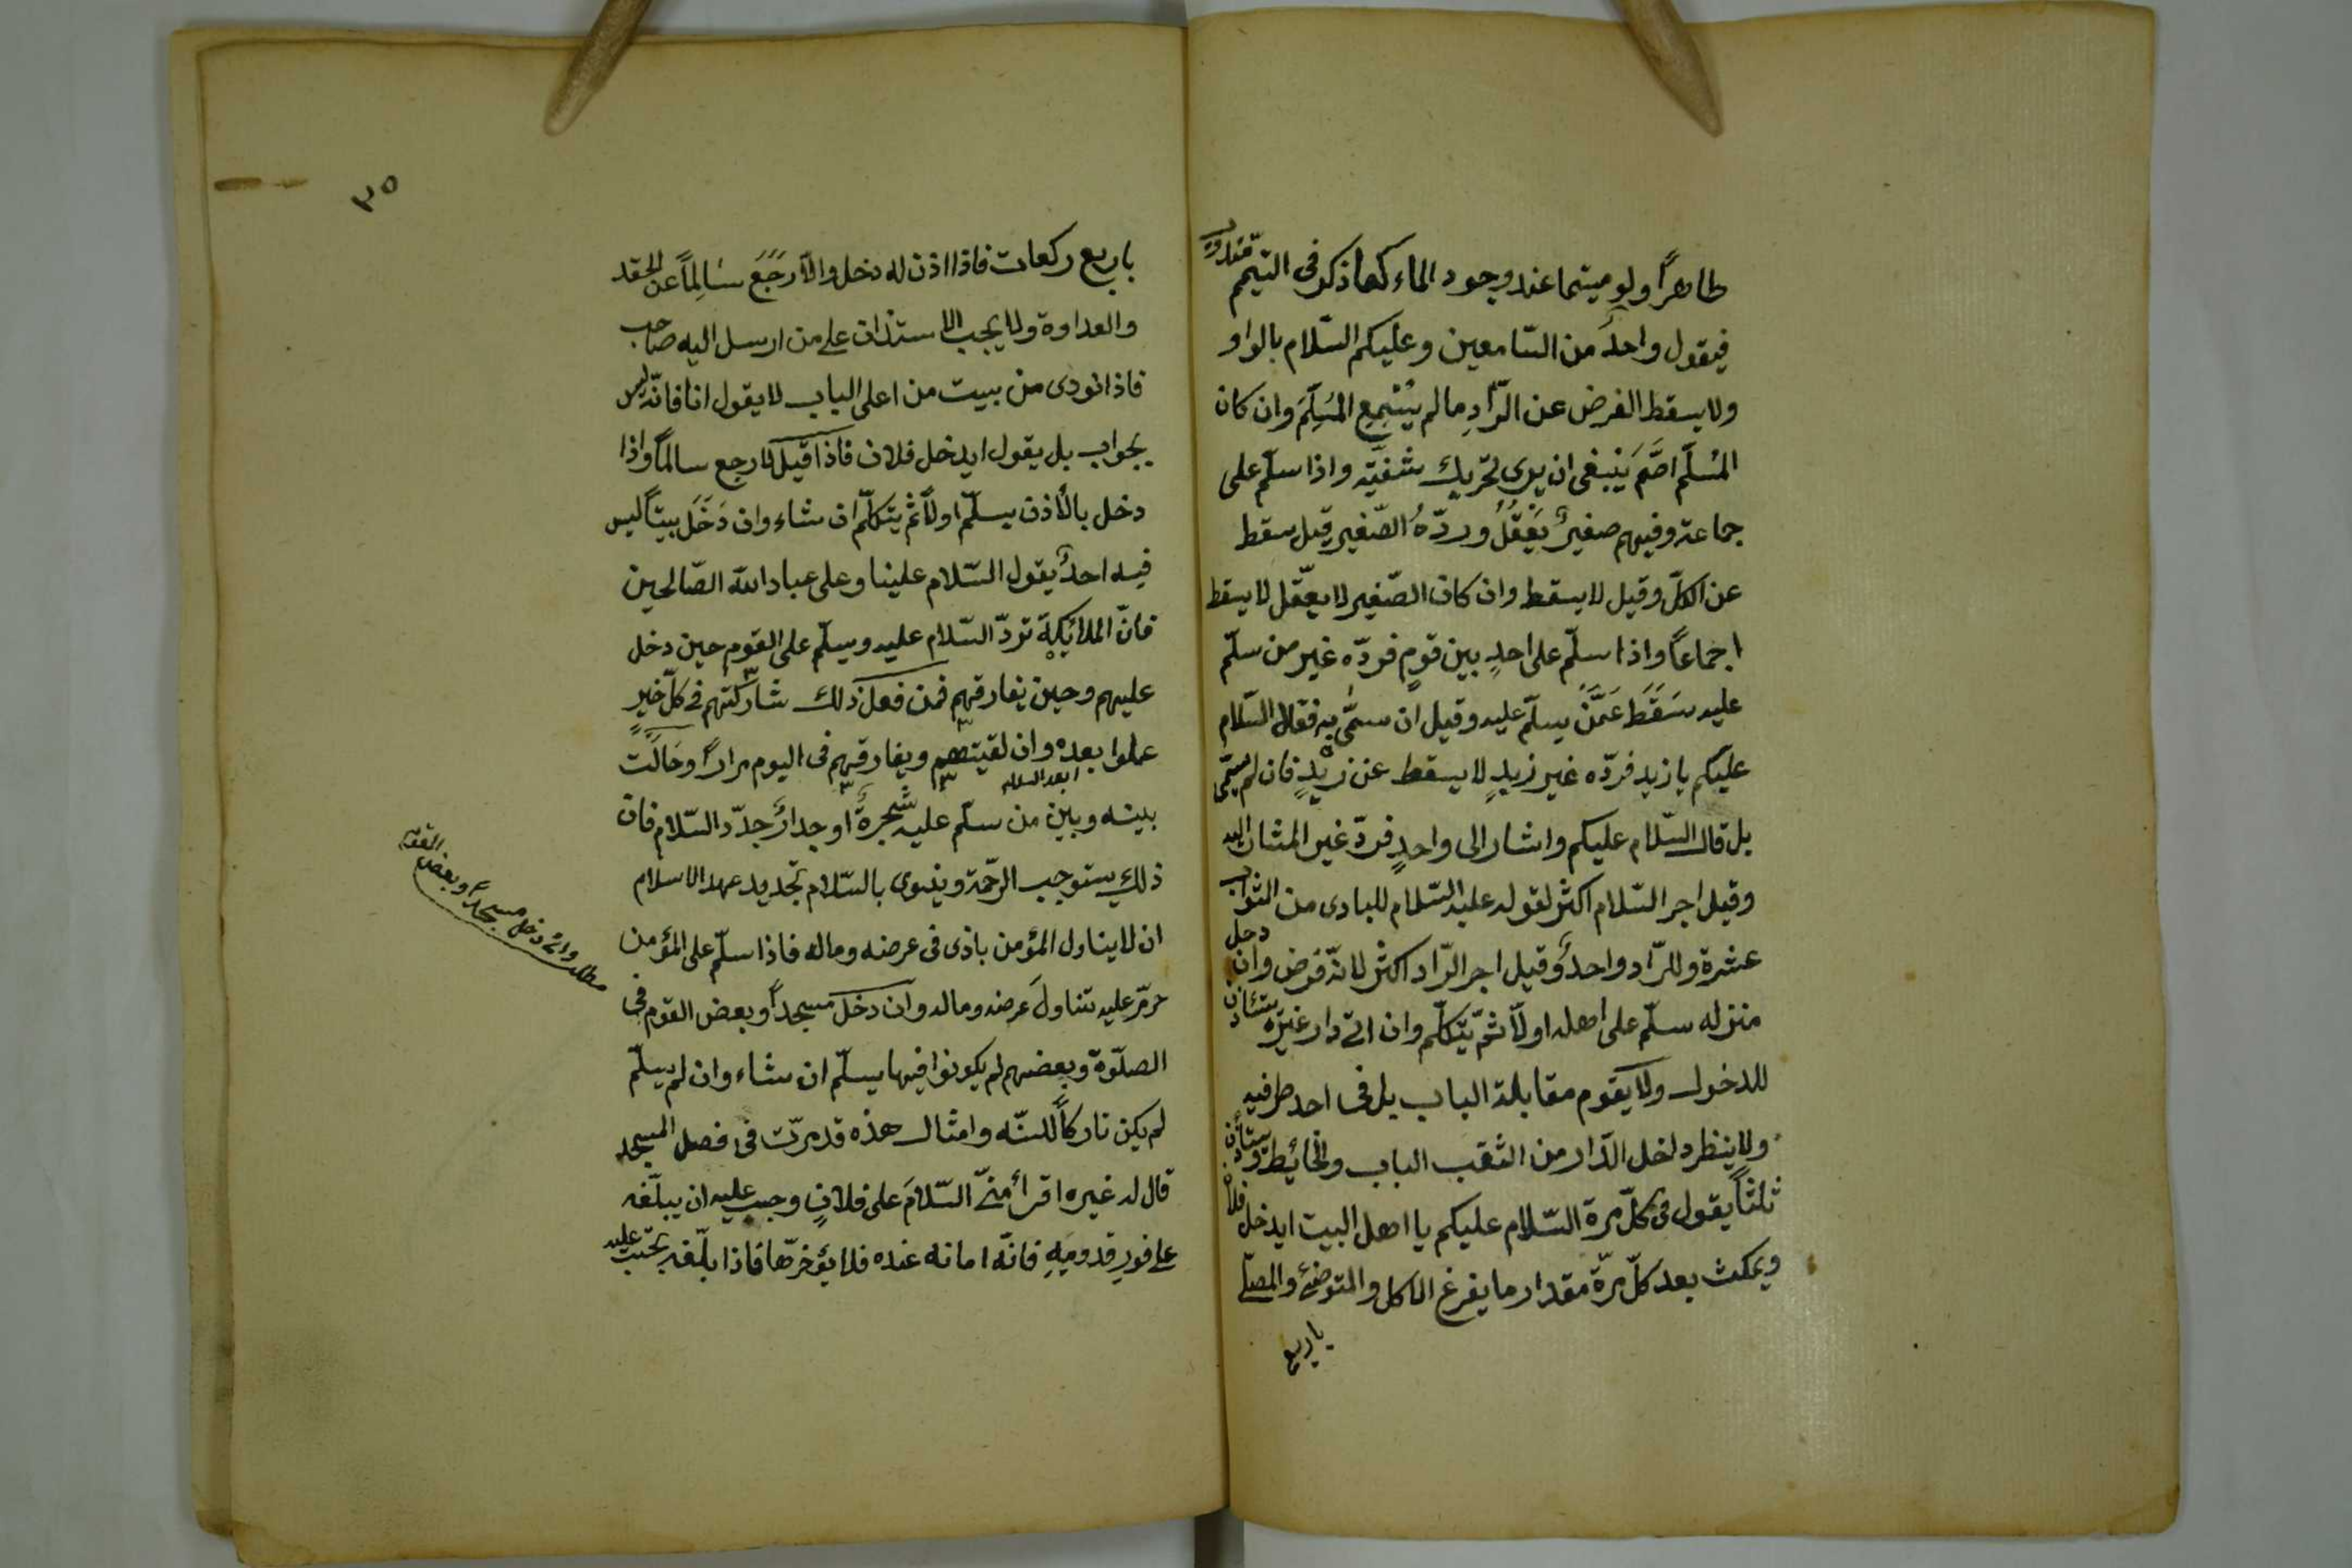 طاهرًا ولو ميتمما عند وجود الماء كما ذكر فى التيمم
فيقول واحدٌ من السّامعين وعليكم السّلام بالواو
ولا يسقط الفرض عن الرّادِ ما لم يُسْمِعِ المُسَلِّمَ وان كان
المُسلّم اصَّمَ ينبغى ان يرى تحريك شفتيه واذا سلّم على
جماعة وفيهم صغيرٌ يَعْقِلُ وردّهُ الصّغير قيل سقط
عن الكلّ وقيل لا يسقط وان كان الصّغير لا يعقل لا يسقط
اجماعًا واذا سلّم على احدٍ بين قومٍ فردّه غير من سلّم
عليه سَقَطَ عَمَّنْ يسلّم عليه وقيل ان سمّى به فقال السّلام
عليكم يا زيد فردّه غير زيدٍ لا يسقط عن زيدٍ فان لم يسمّى
بل قال السّلام عليكم واشار الى واحدٍ فردّ غير المشار اليه
وقيل اجر السّلام اكثر لقوله عليه السّلام للبادى من الثواب
عشرة وللرّاد واحدٌ وقيل اجر الرّاد اكثر لانّه فرض وان دخل
منزله سلّم على اهله اولًا ثمّ يتكلّم وان اتى دار غيره يستأذن
للدخول ولا يقوم مقابلة الباب بل فى احد طرفيه
ولا ينظر داخل الدّار من الثقب الباب والحائط ويستأذن
ثلثًا يقول فى كلّ مرة السّلام عليكم يا اهل البيت ايدخل فلان
ويمكث بعد كلّ مرّة مقدار ما يفرغ الاكل والمتوضئ والمصلّى
باربع
٣٥
باربع ركعات فاذا اذن له دخل والّا رَجَعَ سَالِمًا عن الحقد
والعداوة ولا يجب الاستئذان على من ارسل اليه صاحب
فاذا نودى من بيت من اعلى الباب لا يقول انا فانّه ليس
بجواب بل يقول ايدخل فلان فاذا قيل لا رجع سالمًا واذا
دخل بالأذن يسلّم اولًا ثم يتكلّم ان شاء وان دَخَلَ بيتًا ليس
فيه احدٌ يقول السّلام علينا وعلى عباد الله الصّالحين
فانّ الملائكة تردّ السّلام عليه ويسلّم على القوم حين دخل
عليهم وحين يفارقهم فمن فعل ذلك شاركتهم فى كلّ خيرٍ
عملوا بعده وان لقيتهم ويفارقهم فى اليوم مرارًا وحَالَتْ
بينه وبين من سلّم عليه شجرةٌ او جدارٌ جدّد السّلام فان
ذلك يستوجب الرّحمة وينوى بالسّلام تجديد عهد الاسلام
ان لا يناول المؤمن باذى فى عرضه وماله فاذا سلّم على المؤمن
حرّم عليه تناول عرضه وماله وان دخل مسجدًا وبعض القوم فى
الصلّوة وبعضهم لم يكونوا فيها يسلّم ان شاء وان لم يسلّم
لم يكن تاركًا للسنّه وامثال هذه قد مرّت فى فصل المسجد
قال له غيره اقرأ منّى السّلامَ على فلانٍ وجب عليه ان يبلّغه
على فورِ قدومِهِ فانّه امانة عنده فلا يؤخرّها فاذا بلّغه يجب عليه
مطلب وان دخل مسجدًا وبعض القوم